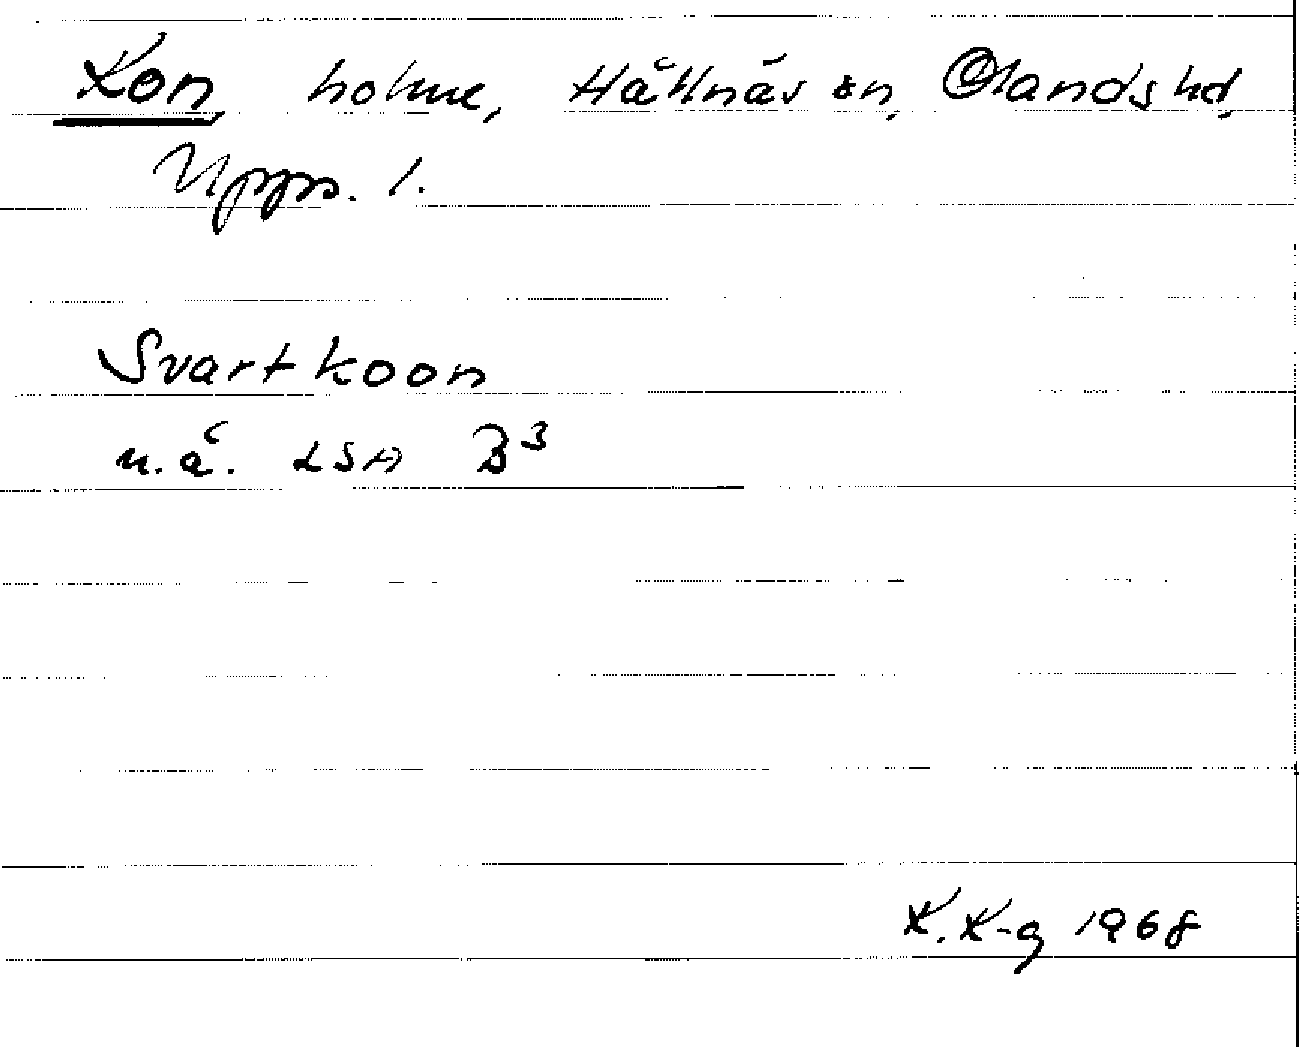 Kon, holme, Hållnäs sn, Olands hd,
Upps. l.
Svartkoon
u.å. LSA B3
K. K-g 1968